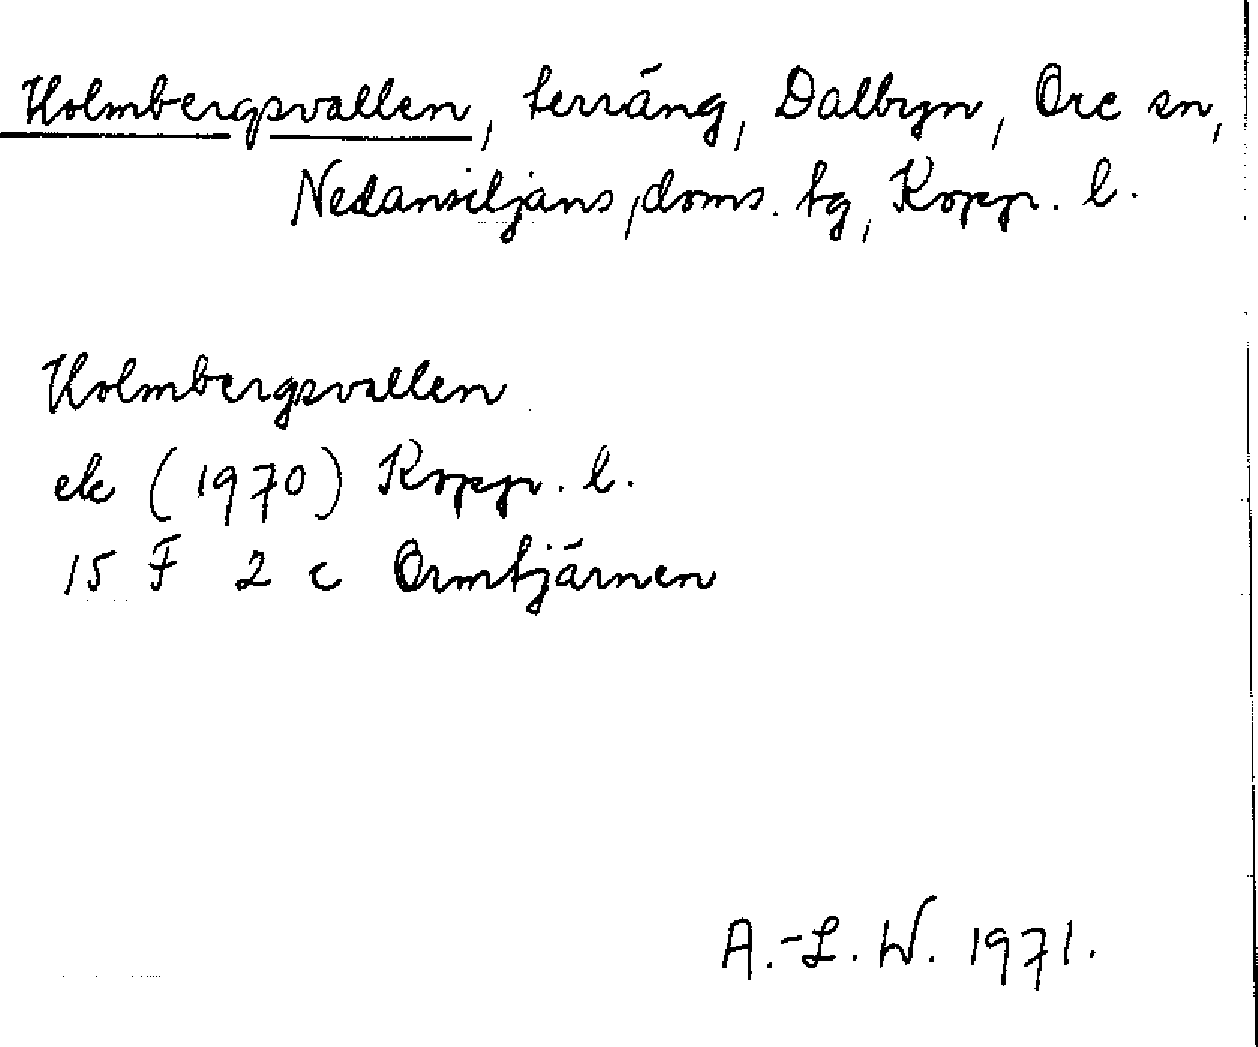 Holmbergsvallen, terräng, Dalbyn, Ore sn,
Nedansiljans, doms. tg, Kopp. l.
Holmbergsvallen
ek (1970) Kopp. l.
15 F 2 c Ormtjärnen
A.-L. W. 1971.